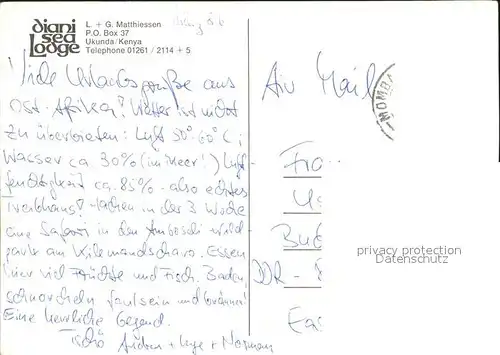 diani
sea
Lodge
L. + G. Matthiessen
P.O. Box 37
Ukunda/Kenya
Telephone 01261 / 2114 + 5
Viele Urlaubsgrüße aus
Ost-Afrika! Wetter ist nicht
zu überbieten: Luft 50°-60°C;
Wasser ca 30% (im Meer!) Luft-
feuchtigkeit ca. 85% - also echtes
Treibhaus! Machen in der 3 Woche
eine Safari in den Amboseli wild-
park am Kilemandscharo. Essen
hier viel Früchte und Fisch. Baden,
schnorcheln faulsein und bräunen!
Eine herrliche Gegend.
Tschö Andrea + Inge + Norman
Air Mail
MOMBA
Fra
Bud
DDR -
Eas
privacy protection
www.akpool.de